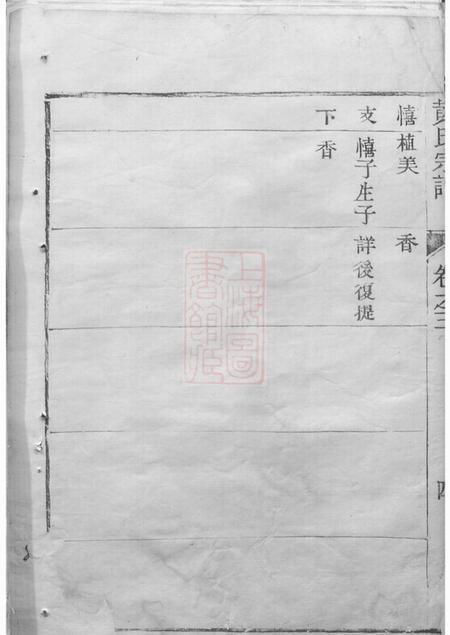 黄氏宗譜
卷之三
四
憘植美 香
支 憘子生子 詳後復提
下 香
上海圖書館藏